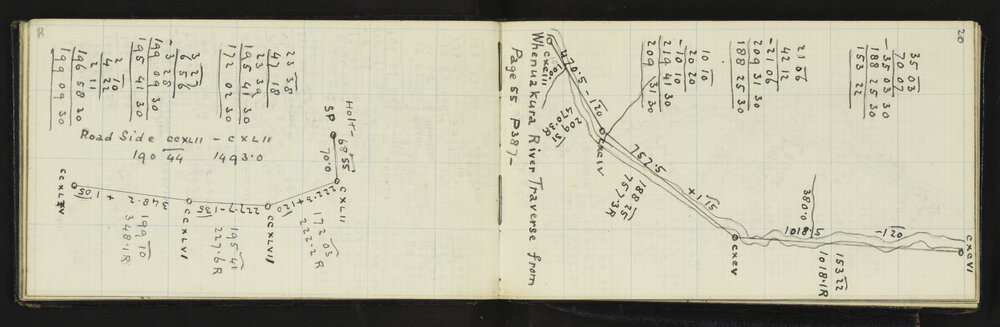 8
2 11
196 58 20
199 09 30
2 10
4 22
3 28
6 56
-3 28
199 09 30
195 41 30
23 38
47 18
23 39
195 41 30
172 02 30
Road Side CCXLII - CXLII
190 44 1493.0
HOLT
SP
68 55
70.0
CXLII
222.3 + 1 20
172 03
222.2 R
CCXLVII
227.7 - 1 35
195 41
227.6 R
CCXLIII
348.2 + 1 05
199 10
348.1 R
CCXLIV
20
35 03
70 07
-35 03 30
188 25 30
153 22
21 06
42 12
-21 06
209 31 30
188 25 30
10 10
20 20
-10 10
219 41 30
209 31 30
Whenuakura River Traverse from
Page 55 P387-
CXCIII
470.5 - 1 20
209 31
470.3 R
CXCIV
757.5 + 1 15
188 25
757.3 R
CXCV
380.0
1018.5 - 1 20
153 22
1018.1 R
CXCVI